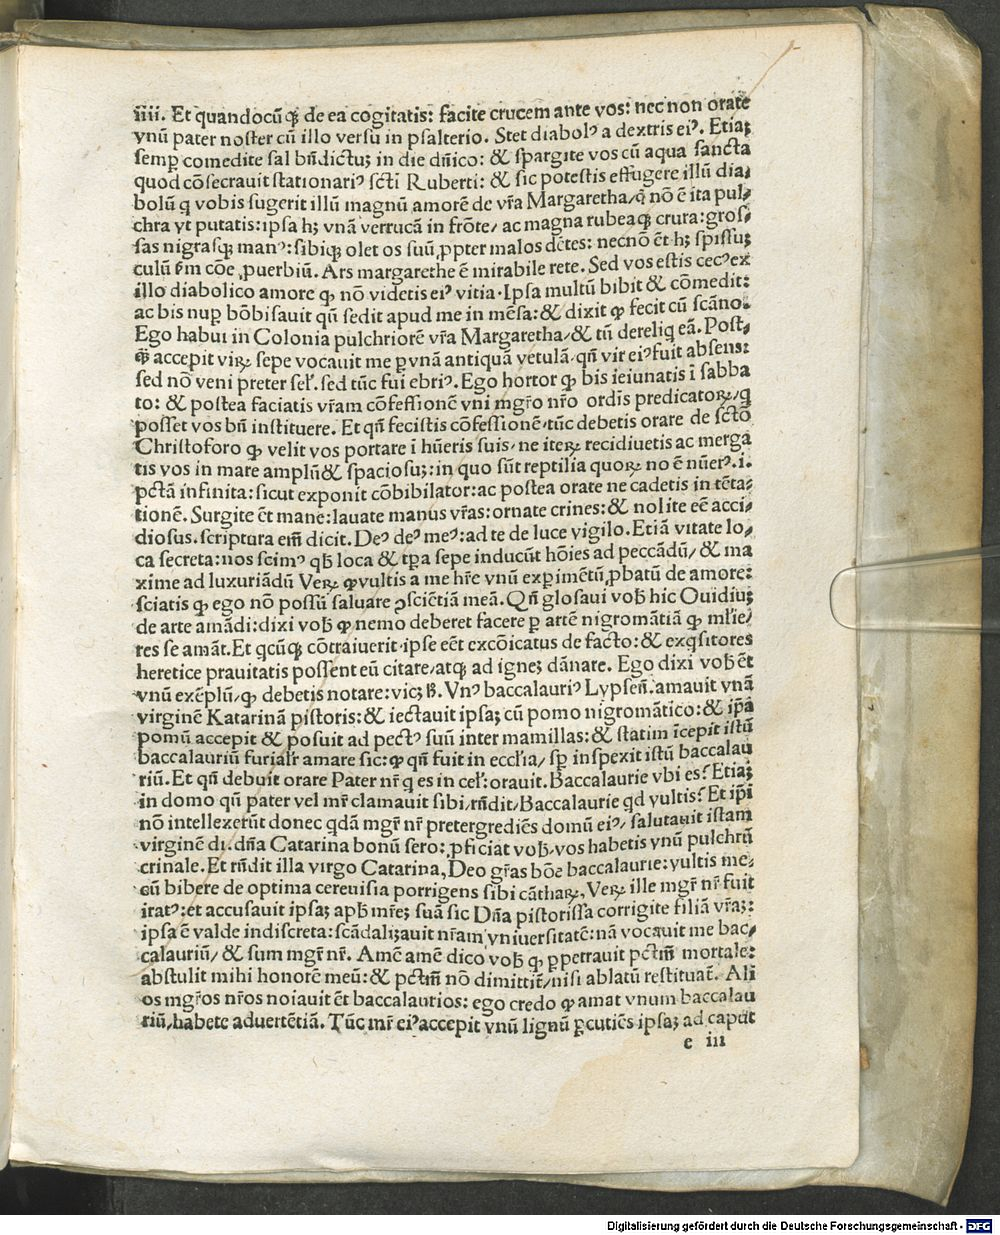 iiii. Et quandocū qȝ de ea cogitatis: facite crucem ante vos: nec non orate
vnū pater noster cū illo versu in psalterio. Stet diabolꝰ a dextris eiꝰ. Etiaȝ
semꝑ comedite sal bn̄dictuȝ in die dn̄ico: & spargite vos cū aqua sancta
quod cōsecrauit stationariꝰ sc̄ti Ruberti: & sic potestis effugere illū dia⸗
bolū q vobis sugerit illū magnū amorē de vr̄a Margaretha/ q̄ nō ē ita pul⸗
chra vt putatis: ipsa hȝ vnā verrucā in frōte/ ac magna rubeaqȝ crura: gros⸗
sas nigrasqȝ manꝰ: sibiqȝ olet os suū ꝓpter malos dētes: necnō ēt hȝ spissuȝ
culū s̄m cōe ꝓuerbiū. Ars margarethe ē mirabile rete. Sed vos estis cecꝰ ex
illo diabolico amore ꝙ nō videtis eiꝰ vitia. Ipsa multū bibit & cōmedit:
ac bis nuꝑ bōbisauit qn̄ sedit apud me in mēsa: & dixit ꝙ fecit cū scāno.
Ego habui in Colonia pulchriorē vr̄a Margaretha/ & tn̄ dereliq eā. Post⸗
qȝ̄ accepit virꝝ sepe vocauit me ꝑ vnā antiquā vetulā qn̄ vir eiꝰ fuit absens:
sed nō veni preter sel̄. sed tūc fui ebriꝰ. Ego hortor ꝙ bis ieiunatis ī sabba
to: & postea faciatis vr̄am cōfessionē vni mgr̄o nr̄o ordīs predicatorꝝ/ q
posset vos bn̄ instituere. Et qn̄ fecistis cōfessionē tūc debetis orare de sc̄to
Christoforo ꝙ velit vos portare ī hūeris suis/ ne iterꝝ recidiuetis ac merga
tis vos in mare amplū & spaciosuȝ: in quo sūt reptilia quorꝝ nō ē nūerꝰ .i.
pctā infinita: sicut exponit cōbibilator: ac postea orate ne cadetis in tēta⸗
tionē. Surgite ēt mane: lauate manus vr̄as: ornate crines: & nolite eē acci⸗
diosus. scriptura em̄ dicit. Deꝰ deꝰ meꝰ: ad te de luce vigilo. Etiā vitate lo⸗
ca secreta: nos scimꝰ qd̄ loca & tꝑa sepe inducūt hōies ad peccādū/ & ma
xime ad luxuriādū Verꝝ ꝙ vultis a me hr̄e vnū exꝑimētū ꝓbatū de amore:
sciatis ꝙ ego nō possū saluare ꝯsciētiā meā. Qn̄ glosaui vob̄ hic Ouidiuȝ
de arte amādi: dixi vob̄ ꝙ nemo deberet facere ꝑ artē nigromātiā ꝙ ml̄ie⸗
res se amāt. Et qcūqȝ cōtraiuerit ipse eēt excōicatus de facto: & exqsitores
heretice prauitatis possent eū citare/ atqȝ ad igneȝ dānare. Ego dixi vob̄ ēt
vnū exēplū/ ꝙ debetis notare: vicȝ ß. Vnꝰ baccalauriꝰ Lypsen̄. amauit vnā
virginē Katarinā pistoris: & iectauit ipsaȝ cū pomo nigromātico: & ip̄a
pomū accepit & posuit ad pectꝰ suū inter mamillas: & statim īcepit istū
baccalauriū furialr̄ amare sic: ꝙ qn̄ fuit in eccl̄ia/ sꝑ inspexit istū baccalau
riū. Et qn̄ debuit orare Pater nr̄ q es in cel̄: orauit. Baccalaurie vbi es? Etiaȝ
in domo qn̄ pater vel mr̄ clamauit sibi/ rn̄dit/ Baccalaurie qd vultis? Et ip̄i
nō intellexerūt donec qdā mgr̄ nr̄ pretergrediēs domū eiꝰ/ salutauit istam
virginē di. dn̄a Catarina bonū sero: ꝓficiat vob̄ vos habetis vnū pulchrū
crinale. Et rn̄dit illa virgo Catarina, Deo gr̄as bōe baccalaurie: vultis me⸗
cū bibere de optima cereuisia porrigens sibi cātharꝝ, Verꝝ ille mgr̄ nr̄ fuit
iratꝰ: et accusauit ipsaȝ apḃ mr̄eȝ suā sic Dn̄a pistorissa corrigite filiā vr̄aȝ:
ipsa ē valde indiscreta: scādaliȝauit nr̄am vniuersitatē: nā vocauit me bac⸗
calauriū/ & sum mgr̄ nr̄. Amē amē dico vob̄ ꝙ ꝑpetrauit pctm̄ mortale:
abstulit mihi honorē meū: & pctm̄ nō dimittit̄/ nisi ablatū restituat̄. Ali
os mgr̄os nr̄os noiauit ēt baccalaurios: ego credo ꝙ amat vnum baccalau
riū/ habete aduertētiā. Tūc mr̄ eiꝰ accepit vnū lignū ꝑcutiēs ipsaȝ ad caput
e iii
Digitalisierung gefördert durch die Deutsche Forschungsgemeinschaft - DFG